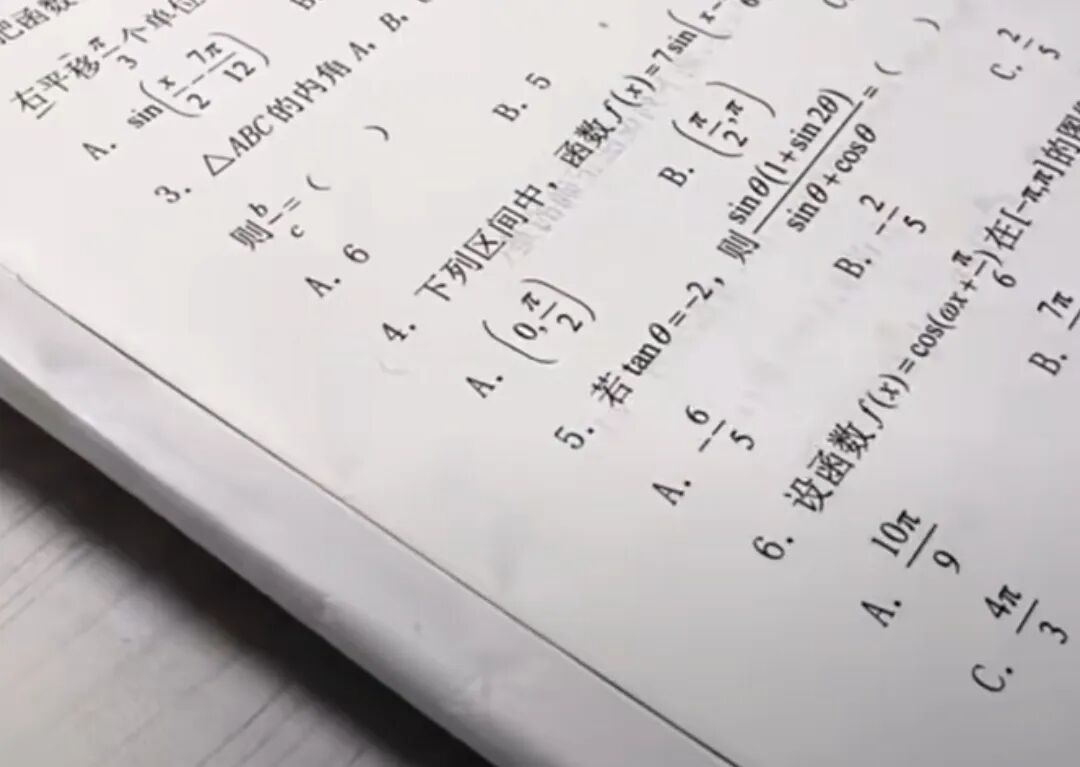 把函数
右平移π/3个单位
A. sin(x/2-7π/12)
3. △ABC的内角A, B,
则b/c=( )
A. 6 B. 5
4. 下列区间中，函数f(x)=7sin(x-
A. (0,π/2) B. (π/2,π)
5. 若tanθ=-2，则sinθ(1+sin2θ)/sinθ+cosθ=( )
A. -6/5 B. -2/5 C. 2/5
6. 设函数f(x)=cos(ωx+π/6)在[-π,π]的图
A. 10π/9 B. 7π
C. 4π/3